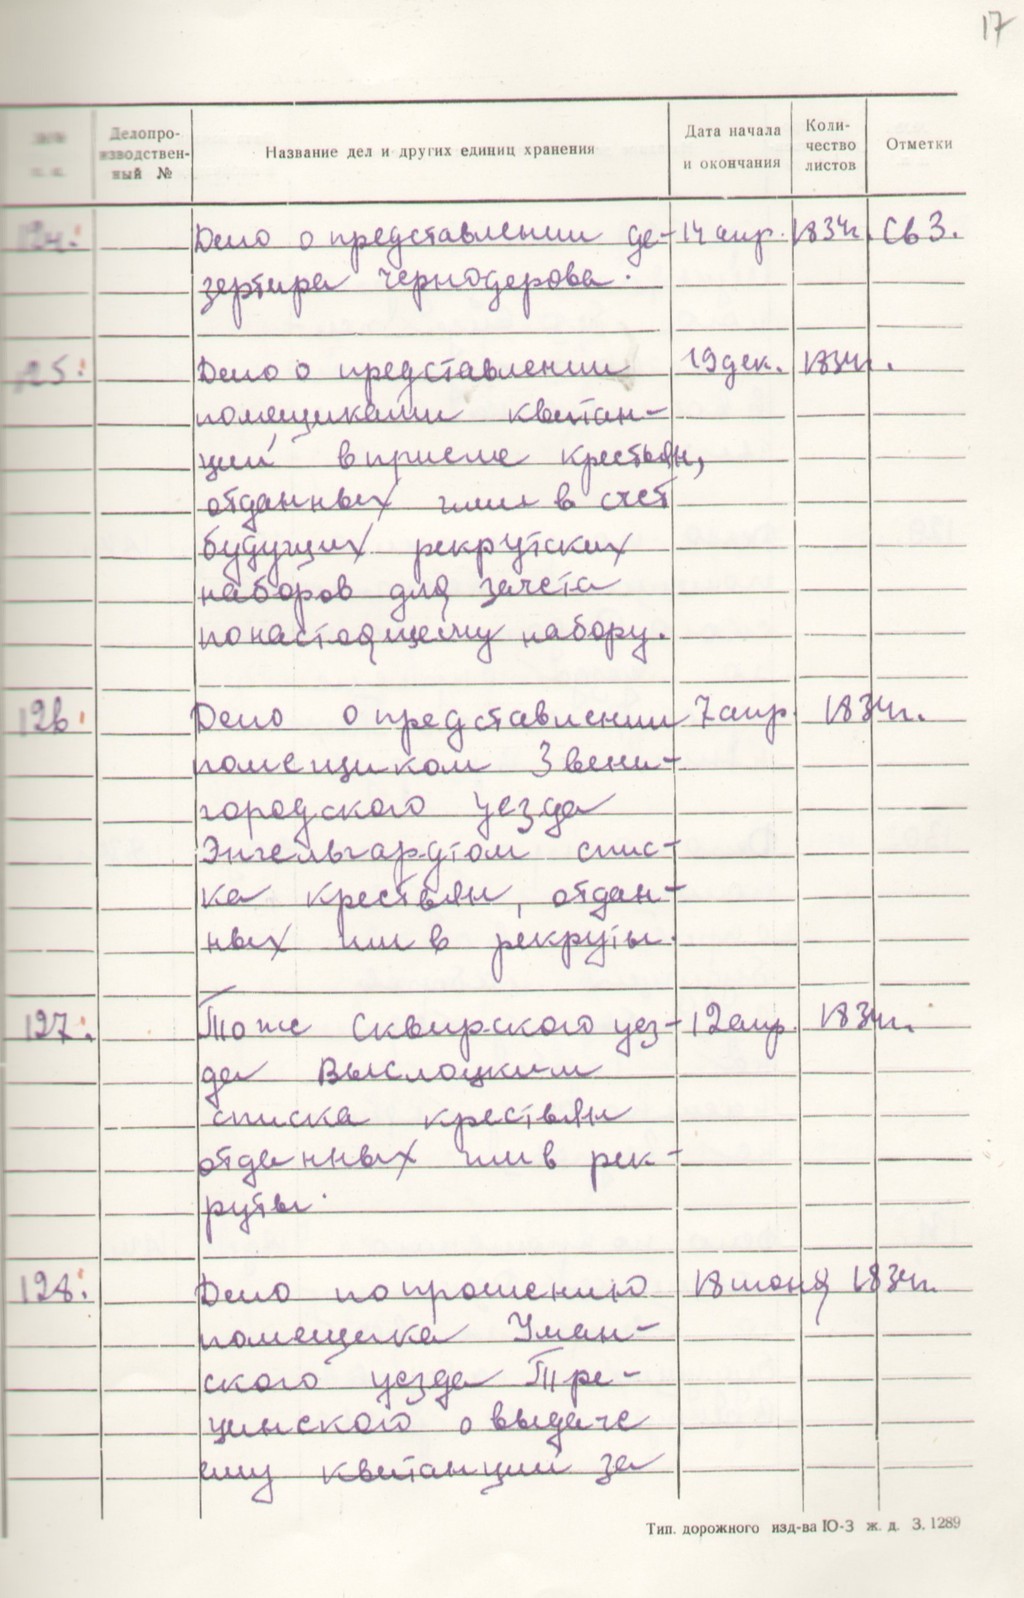 17
Делопро-
изводствен-
ный №
Название дел и других единиц хранения
Дата начала
и окончания
Коли-
чество
листов
Отметки
124. Дело о представлении де- 14 апр. 1834г. Св 3.
зертира Чернодерова.
125. Дело о представлении 19 дек. 1834г.
помещиками квитан-
ций в приеме крестьян,
отданных ими в счет
будущих рекрутских
наборов для зачета
по настоящему набору.
126 Дело о представлении 7 апр 1834г.
помещиком Звени-
городского уезда
Энгельгардтом спис-
ка крестьян, отдан-
ных им в рекруты.
127. То же Сквирского уез- 12 апр. 1834г.
да Выслоцким
списка крестьян
отданных им в рек-
руты.
128. Дело по прошению 18 июня 1834г.
помещика Уман-
ского уезда Тре-
цинского о выдаче
ему квитанций за
Тип. дорожного изд-ва Ю-З ж. д. З. 1289